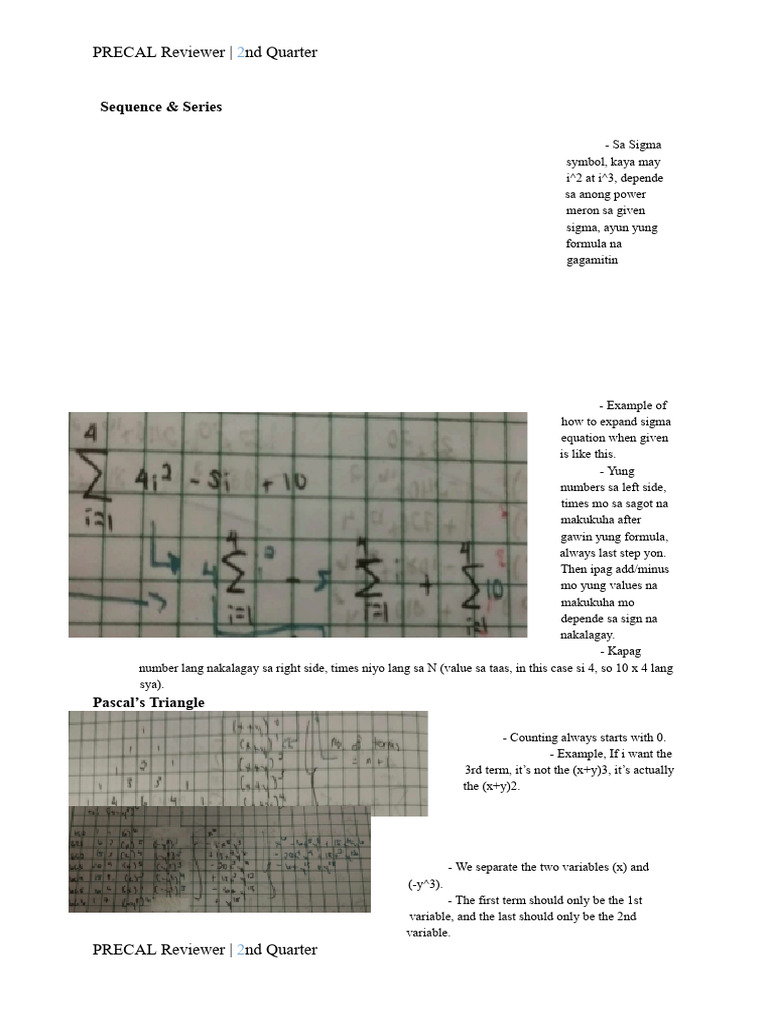 PRECAL Reviewer | 2nd Quarter
Sequence & Series
- Sa Sigma
symbol, kaya may
i^2 at i^3, depende
sa anong power
meron sa given
sigma, ayun yung
formula na
gagamitin
- Example of
how to expand sigma
equation when given
is like this.
- Yung
numbers sa left side,
times mo sa sagot na
makukuha after
gawin yung formula,
always last step yon.
Then ipag add/minus
mo yung values na
makukuha mo
depende sa sign na
nakalagay.
- Kapag
number lang nakalagay sa right side, times niyo lang sa N (value sa taas, in this case si 4, so 10 x 4 lang
sya).
4
∑ 4i² - 5i + 10
i=1
4 4 4
4 ∑ i² - 5 ∑ + ∑ 10
i=1 i=1 i=1
Pascal’s Triangle
1 (x+y)⁰
1 1 (x+y)¹
1 2 1 (x+y)²
1 3 3 1 (x+y)³
1 4 6 4 1 (x+y)⁴
No. of terms
= n+1
- Counting always starts with 0.
- Example, If i want the
3rd term, it’s not the (x+y)3, it’s actually
the (x+y)2.
- We separate the two variables (x) and
(-y^3).
- The first term should only be the 1st
variable, and the last should only be the 2nd
variable.
PRECAL Reviewer | 2nd Quarter